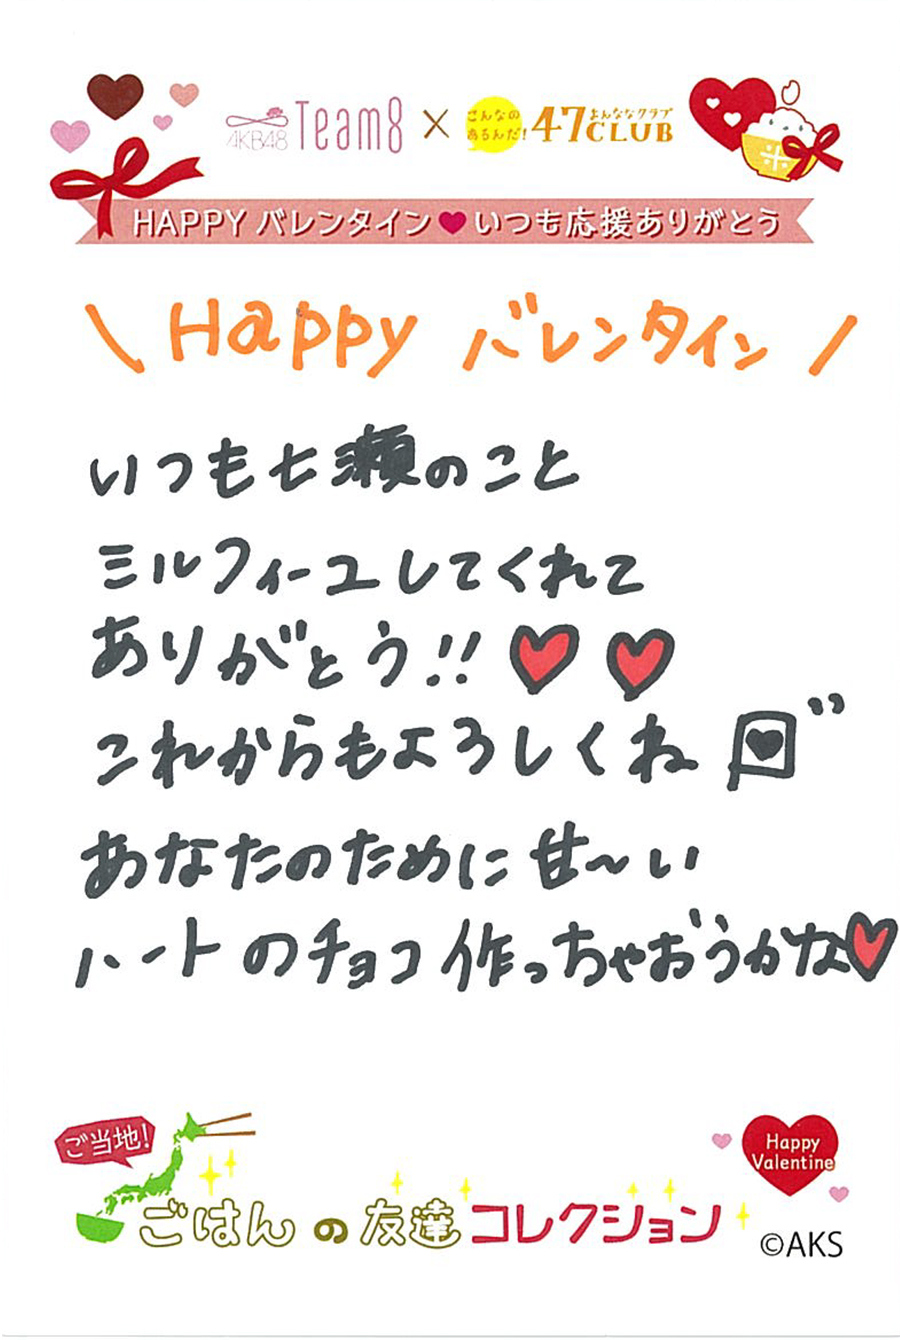 AKB48 Team8 × こんなのあるんだ! 47CLUB よんななクラブ
HAPPY バレンタイン♥いつも応援ありがとう
\ Happy バレンタイン /
いつも七瀬のこと
ミルフィーユしてくれて
ありがとう!! ♥ ♥
これからもよろしくね
あなたのために甘〜い
ハートのチョコ作っちゃおうかな♥
ご当地!
ごはんの友達コレクション
Happy
Valentine
©AKS